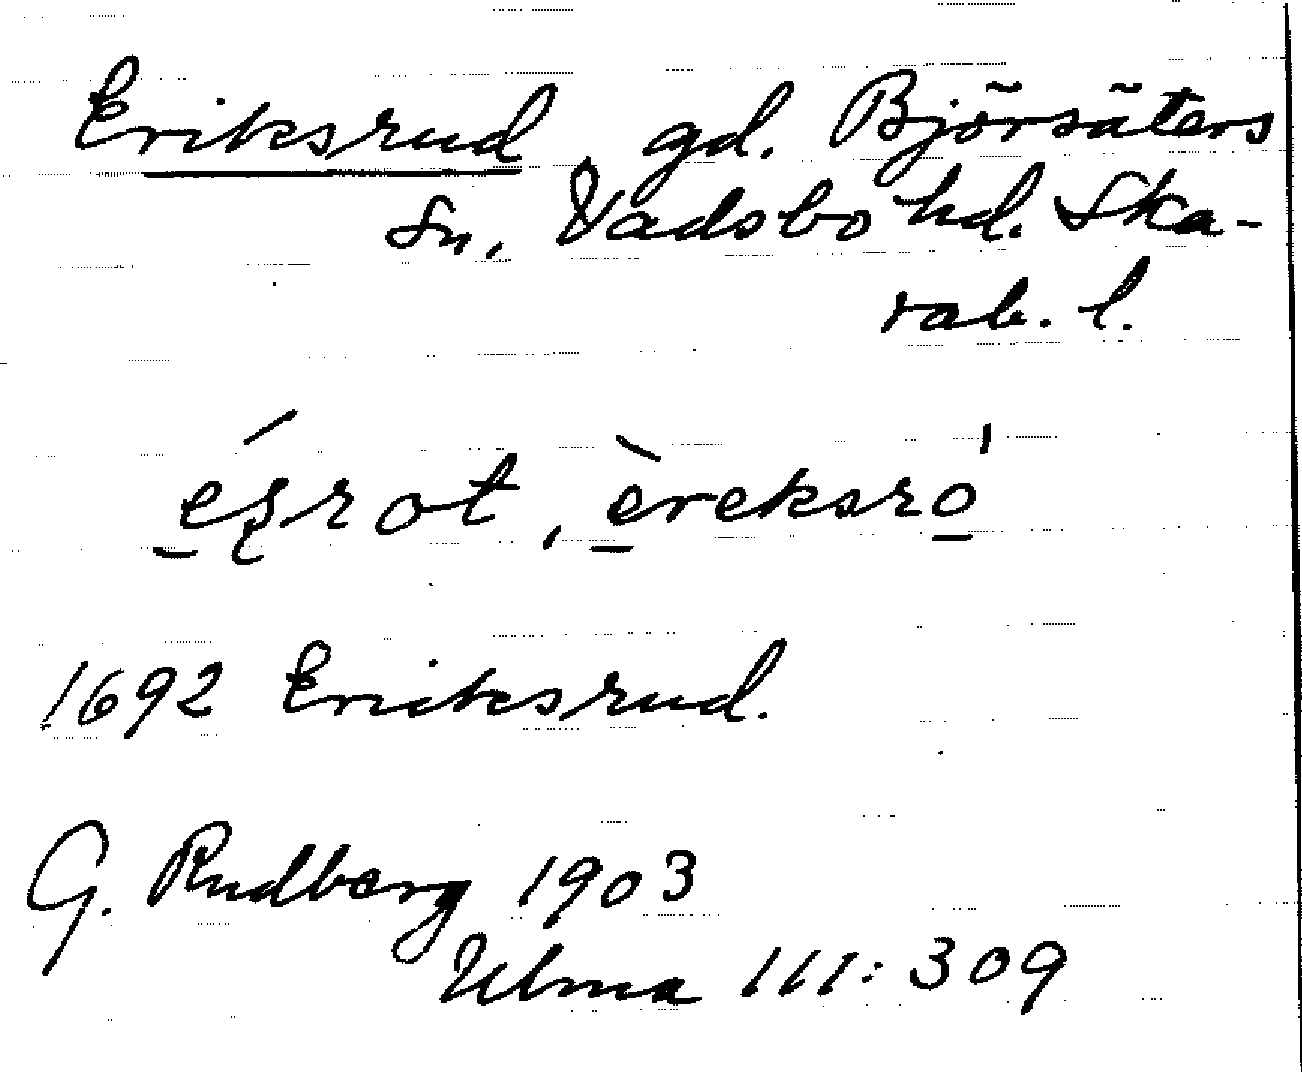 Eriksrud gd. Björsäters
sn, Vadsbo hd. Ska-
rab. l.
é̠ʂrot, è̠reksro̠̍
1692 Eriksrud.
G. Rudberg 1903
Ulma 111:309